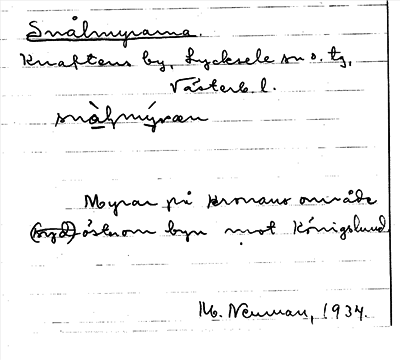 Snålmyrarna.
Knaftens by, Lycksele sn o. tg,
Västerb. l.
snålmýran
Myrar på kronans område
(syd) öster om byn mot Königslund
M. Neuman, 1934.